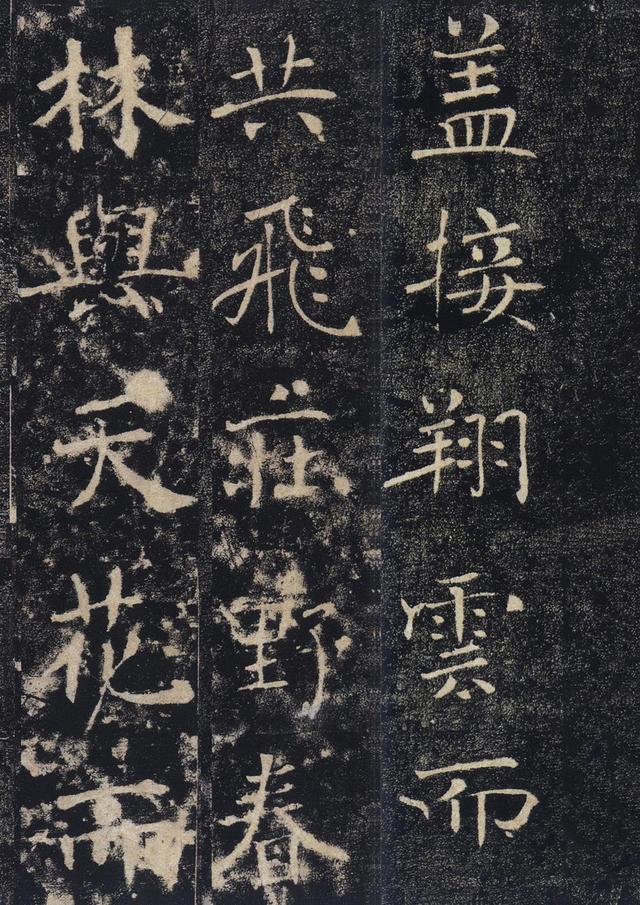 盖接翔雲而
共飛莊野春
林與天花而